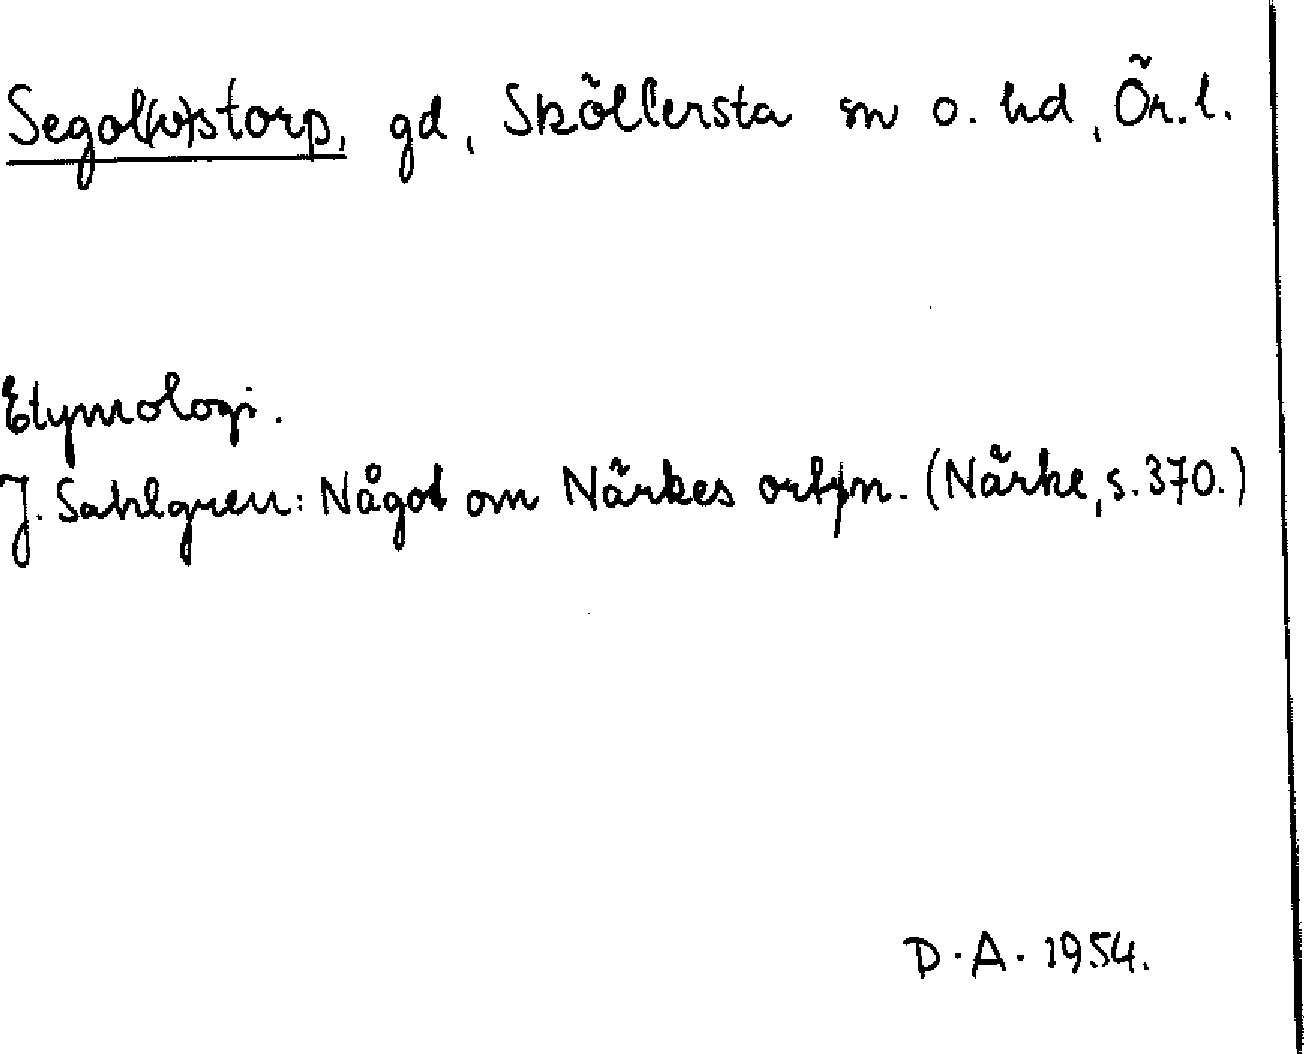 Segol(v)storp, gd, Sköllersta sn o. hd, Ör. l.
Etymologi.
J. Sahlgren: Något om Närkes ortsn. (Närke, s. 370.)
D. A. 1954.